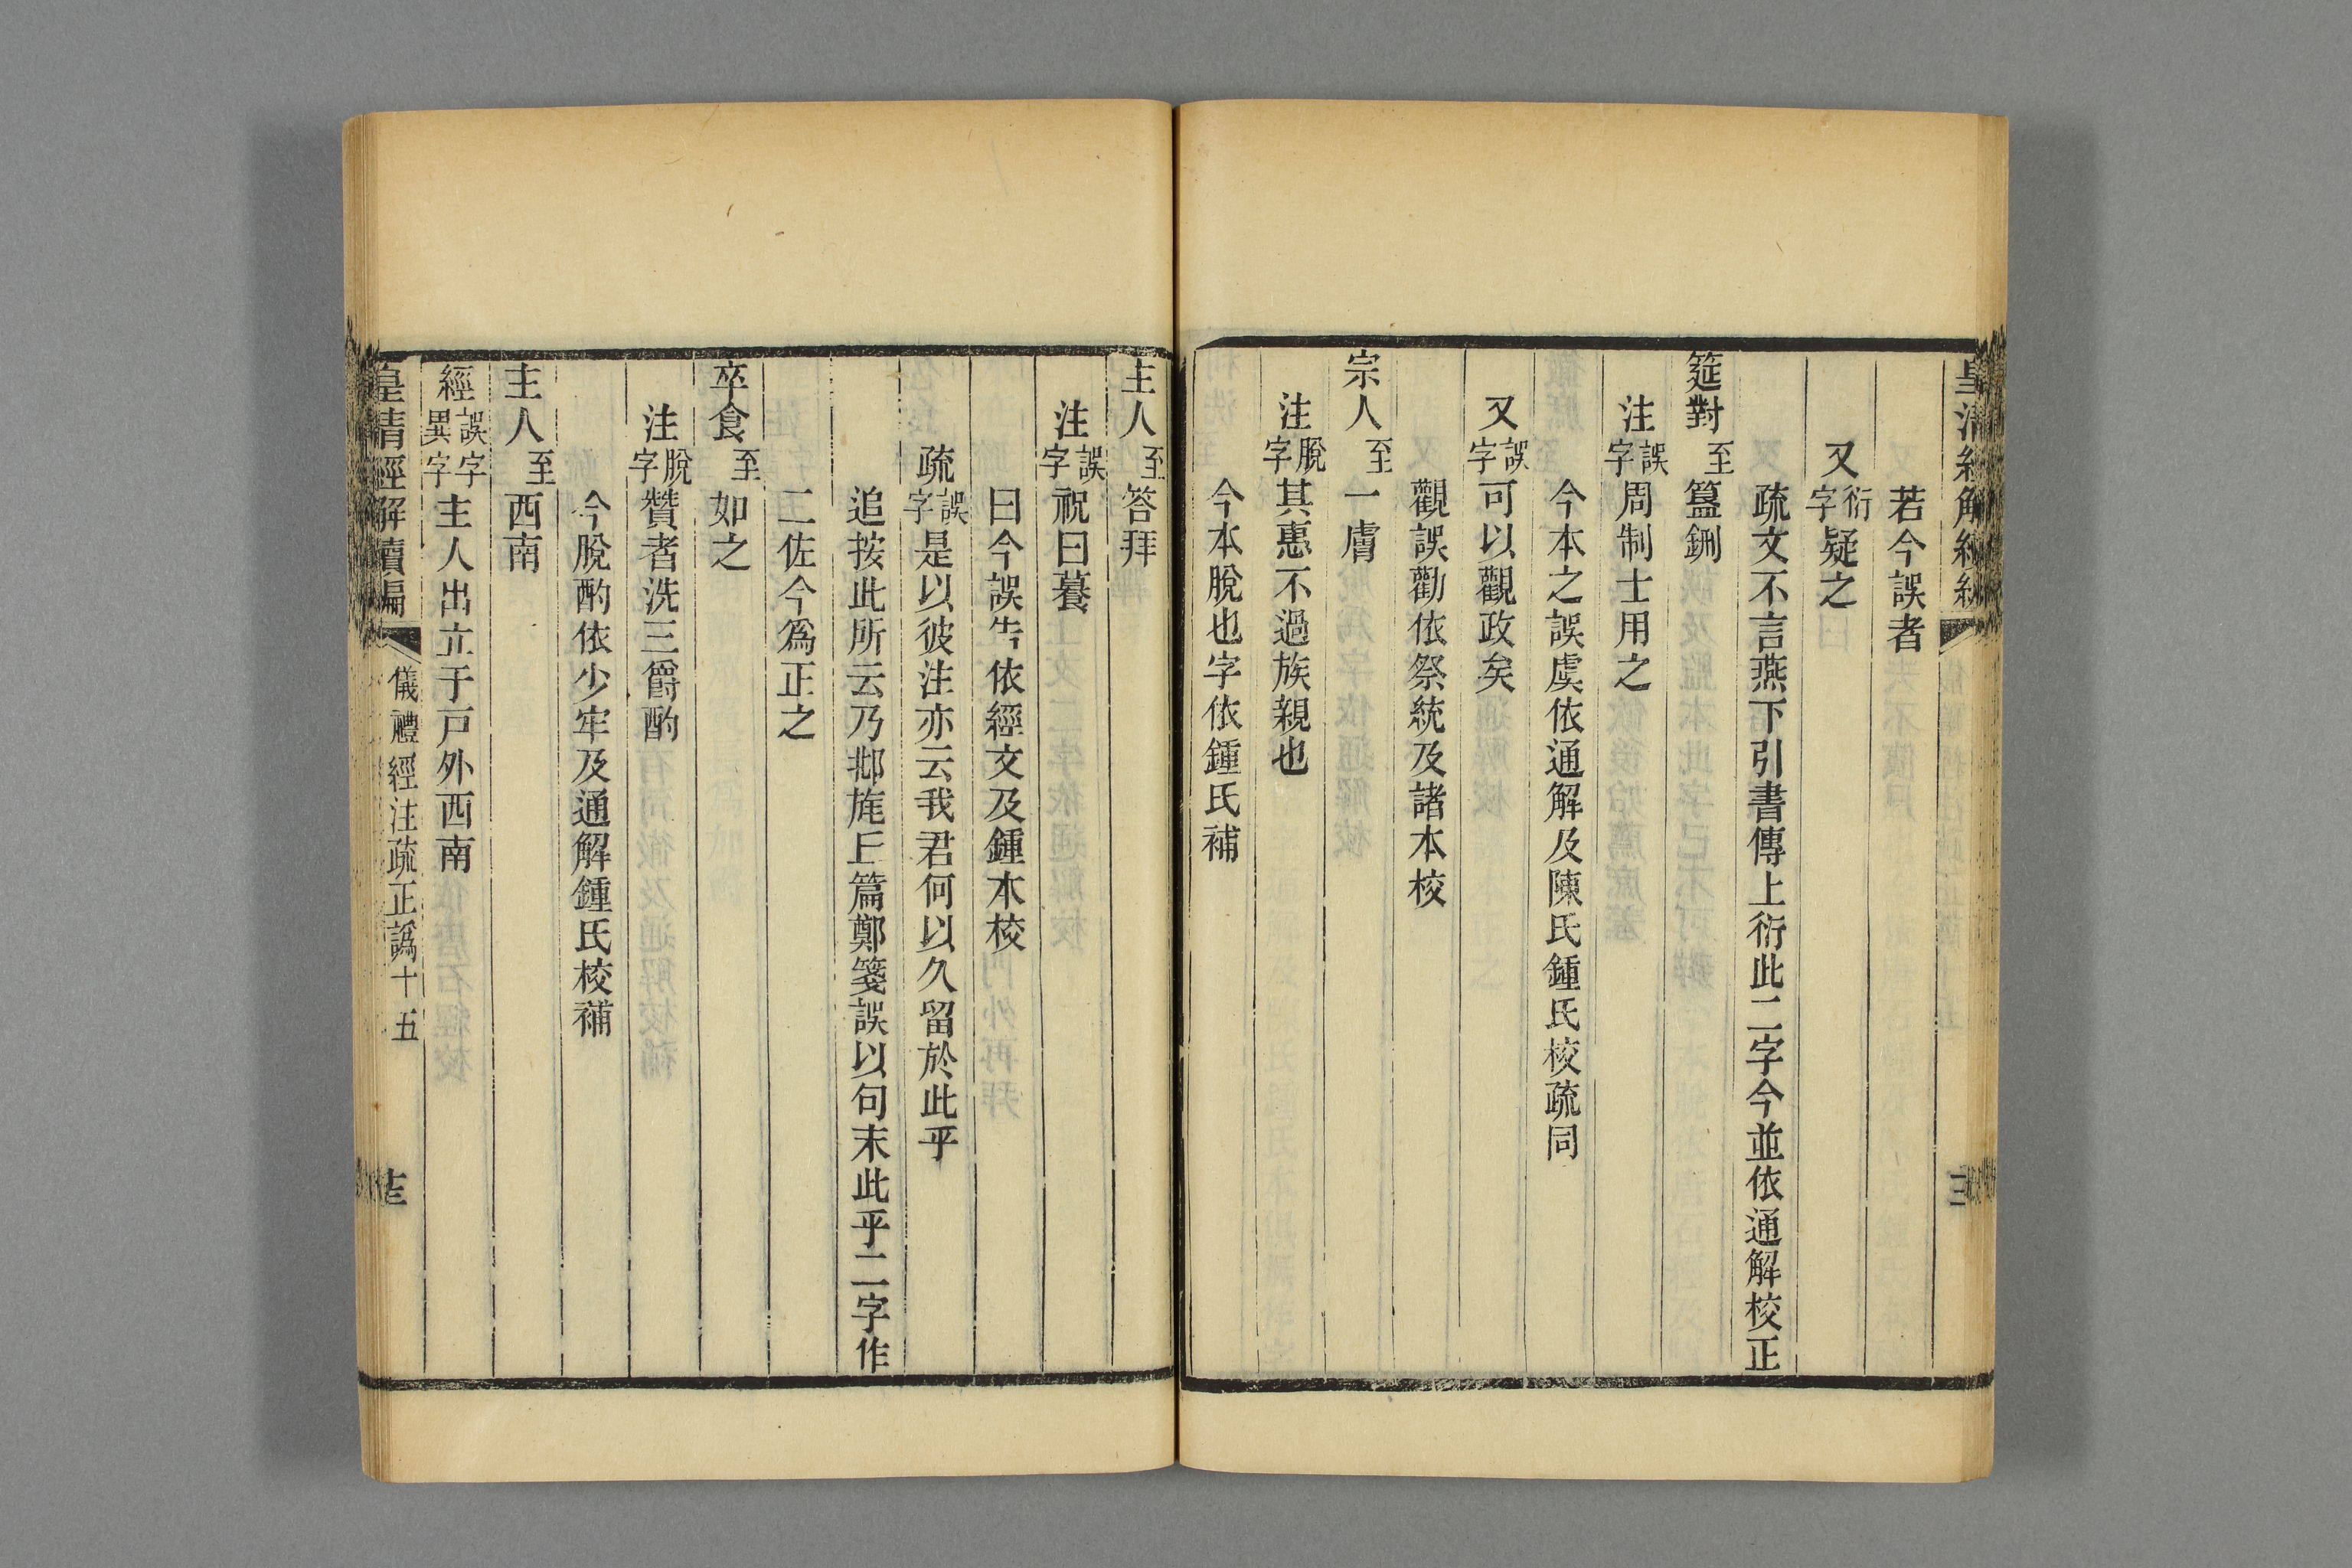 若今誤者
又衍字疑之
疏文不言燕下引書傳上衍此二字今並依通解校正
筵對至簋鉶
注誤字周制士用之
今本之誤虞依通解及陳氏鍾氏校疏同
又誤字可以觀政矣
觀誤勸依祭統及諸本校
宗人至一膚
注脫字其惠不過族親也
今本脫也字依鍾氏補
主人至答拜
注誤字祝曰䬸
曰今誤告依經文及鍾本校
疏誤字是以彼注亦云我君何以久留於此乎
追按此所云乃邶旄丘篇鄭箋誤以句末此乎二字作
二佐今爲正之
卒食至如之
注脫字贊者洗三爵酌
今脫酌依少牢及通解鍾氏校補
主人至西南
經誤字異字主人出立于戸外西南
皇清經解續編 儀禮經注疏正譌十五